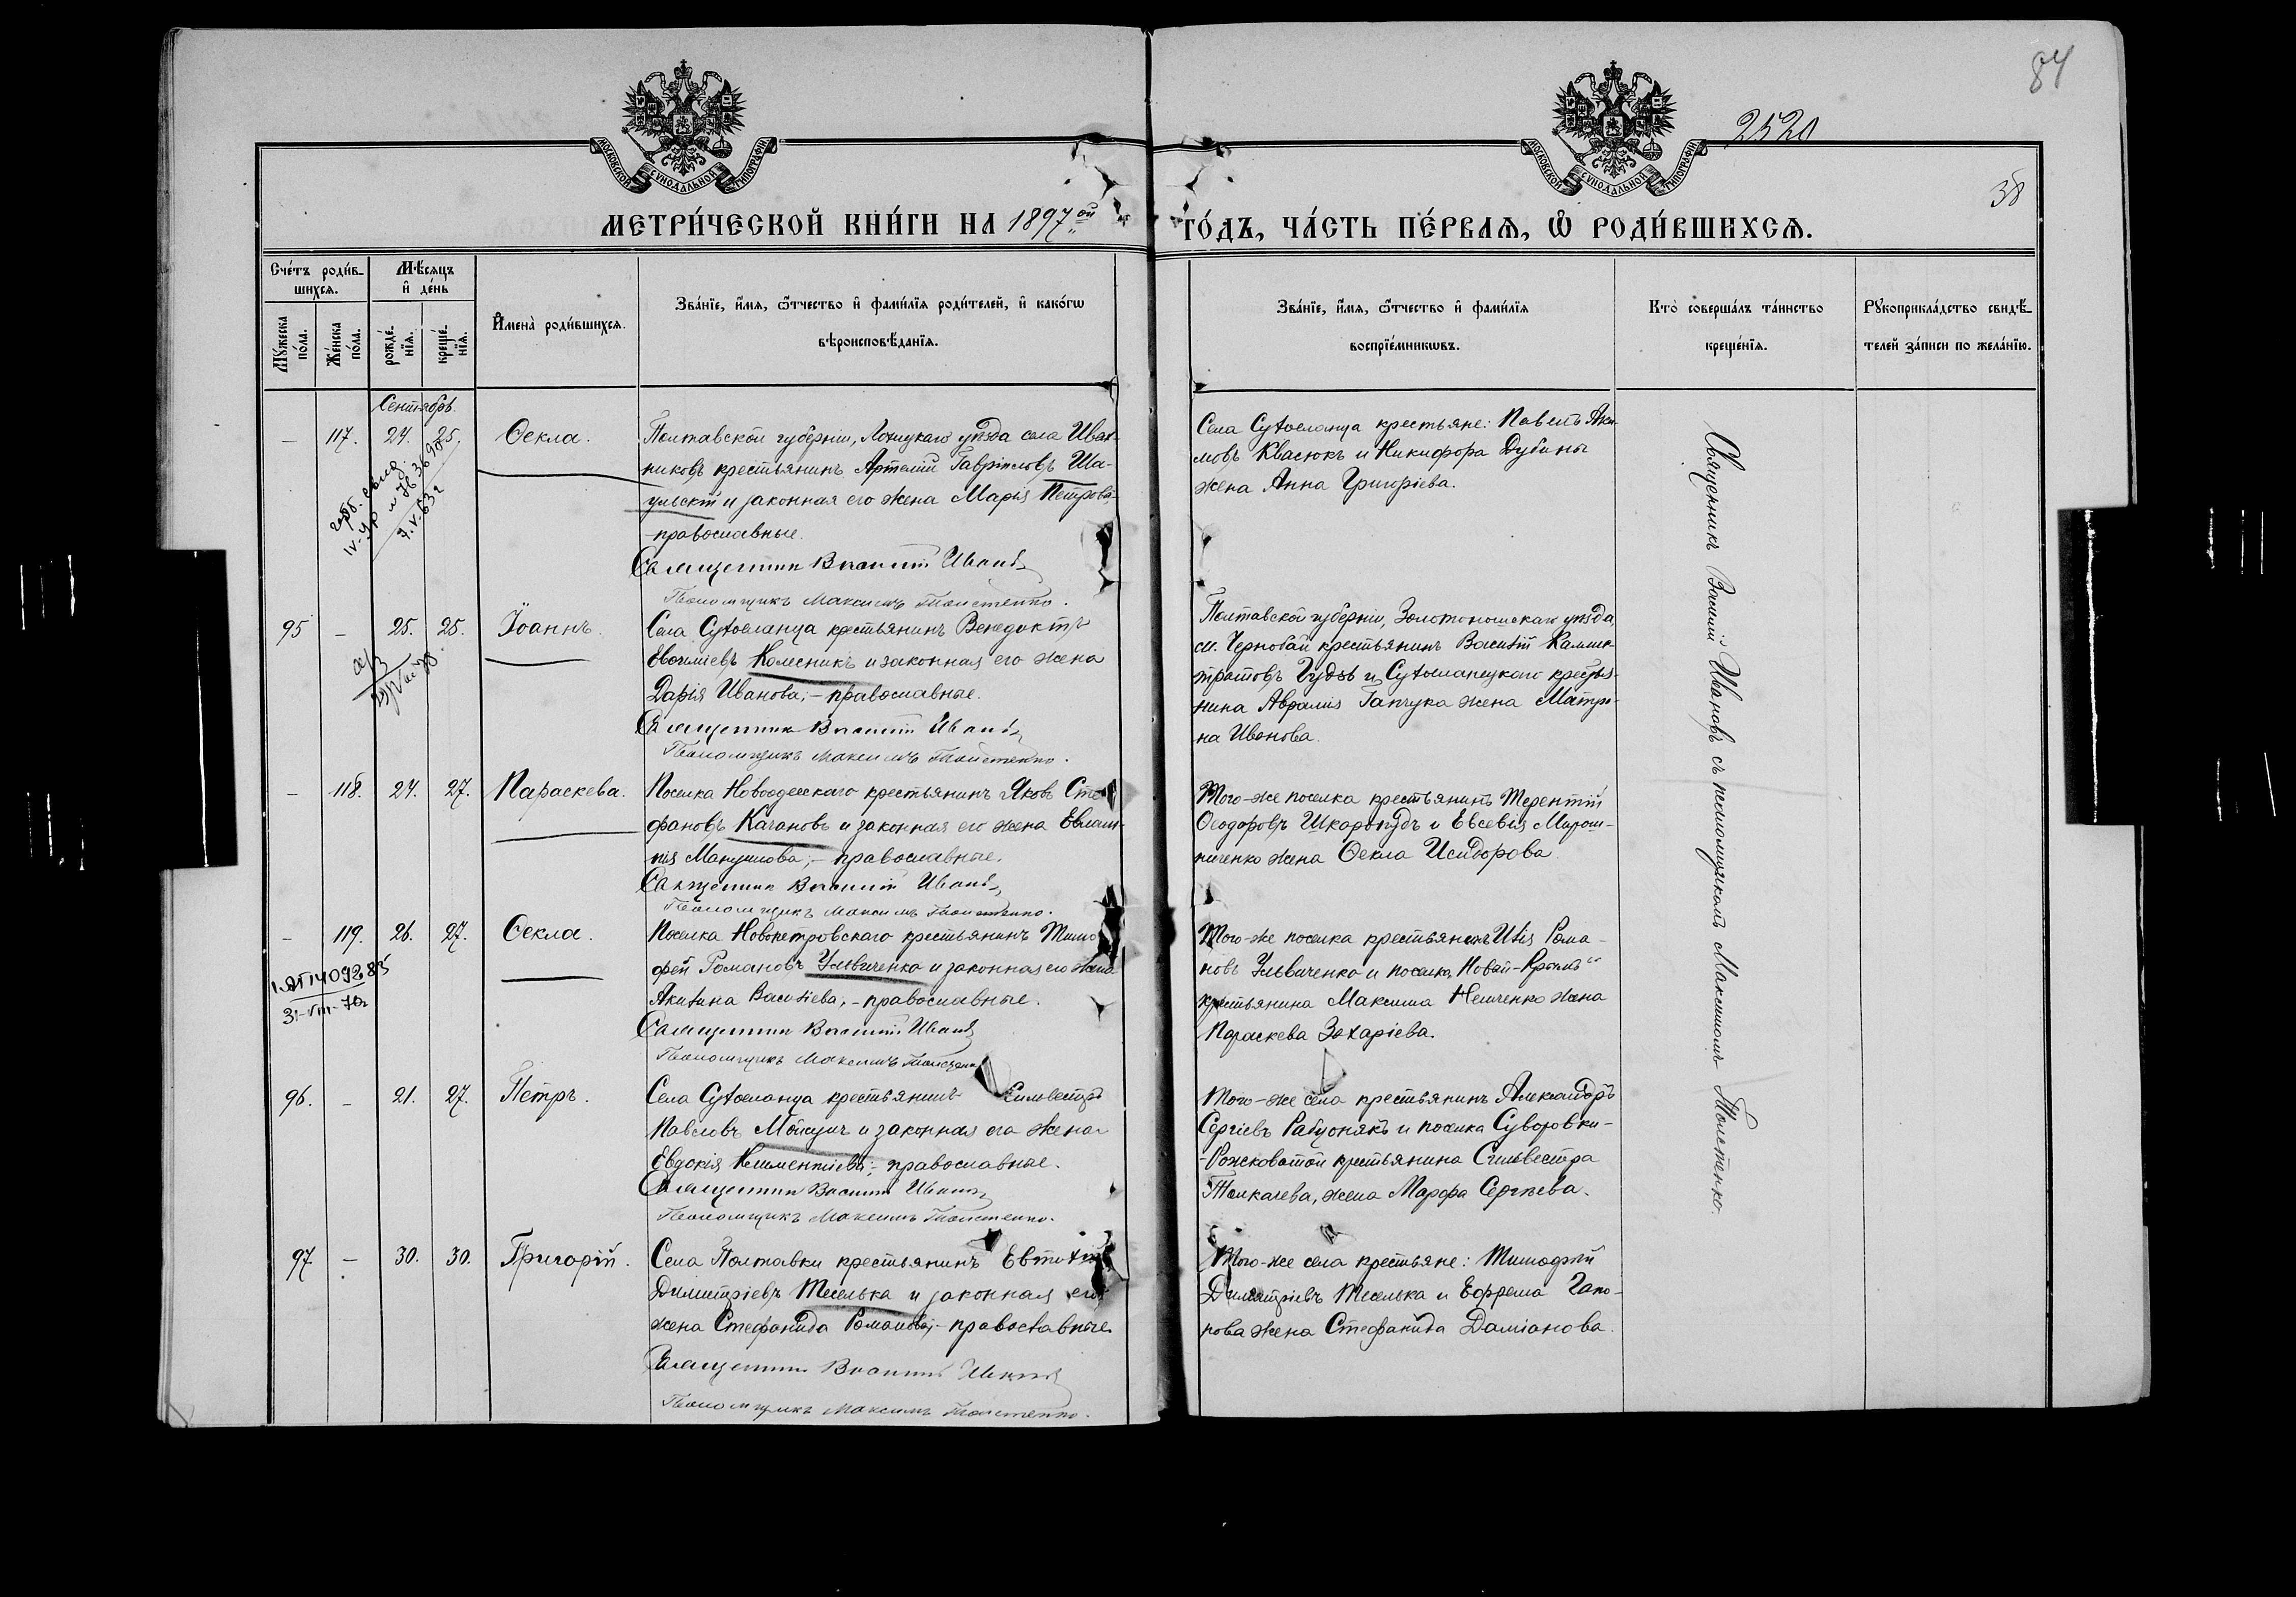 84
2520
38
МОСКОВСКОЙ СУНОДАЛЬНОЙ ТИПОГРАФІИ
МОСКОВСКОЙ СУНОДАЛЬНОЙ ТИПОГРАФІИ
МЕТРИ́ЧЕСКОЙ КНИ́ГИ НА 1897ой ГО́ДЪ, ЧА́СТЬ ПЕ́РВАЯ, Ѡ РОДИ́ВШИХСЯ.
Сче́тъ роди́в-
шихся.
Мѣ́сяцъ
и де́нь
Му́жеска
по́ла.
Же́нска
по́ла.
рожде́-
нїя.
креще́-
нїя.
Имена̀ роди́вшихся.
Зва́нїе, и́мя, ѻ҆́тчество и фами́лїя роди́телей, и како́гѡ
вѣроисповѣ́данїя.
Зва́нїе, и́мя, ѻ҆́тчество и фами́лїя
воспрїе́мникѡвъ.
Кто̀ соверша́лъ та́инство
креще́нїя.
Рꙋкоприкла́дство свидѣ́-
телей за́писи по жела́нїю.
Сентябрь.
— 117. 24. 25. Ѳекла.
Полтавской губерніи, Лохицкаго уѣзда села Иван-
никовъ крестьянинъ Артемій Гавріиловъ Ша-
ульскій и законная его жена Марія Петрова,
православные.
Священникъ Василій Ивановъ
Псаломщикъ Максимъ Толстенко.
Села Суѳосланца крестьяне: Павелъ Аки-
мовъ Квасюкъ и Никифора Дубины
жена Анна Григоріева.
7.V.63г
95 — 25. 25. Іоаннъ.
Села Суѳосланца крестьянинъ Венедиктъ
Евѳиміевъ Колесникъ и законная его жена
Дарія Иванова; – православные.
Священникъ Василій Ивановъ
Псаломщикъ Максимъ Толстенко.
Полтавской губерніи, Золотоношскаго уѣзда,
м. Чернобай крестьянинъ Василій Каллис-
тратовъ Гудзь и Суѳосланецкаго крестья-
нина Аврамія Гапчука жена Матро-
на Иванова.
— 118. 24. 27. Параскева.
Поселка Новоодесскаго крестьянинъ Яковъ Сте-
фановъ Качановъ и законная его жена Евлам-
пія Мануилова; – православные.
Священникъ Василій Ивановъ
Псаломщикъ Максимъ Толстенко.
Того-же поселка крестьянинъ Терентій
Ѳеодоровъ Шкарбпудъ и Евсевія Мирош-
ниченко жена Ѳекла Исидорова.
— 119. 26. 27. Ѳекла.
Поселка Новопетровскаго крестьянинъ Тимо-
фей Романовъ Ульвиченко и законная его жена
Акилина Василіева; – православные.
Священникъ Василій Ивановъ
Псаломщикъ Максимъ Толстенко.
Того-же поселка крестьянинъ Илія Рома-
новъ Ульвиченко и поселка „Новый-Крымъ“
крестьянина Максима Немченко жена
Параскева Захаріева.
31-VIII-70г
96. — 21. 27. Петръ.
Села Суѳосланца крестьянинъ Сильвестръ
Павловъ Мойсичъ и законная его жена
Евдокія Климентіева; – православные.
Священникъ Василій Ивановъ
Псаломщикъ Максимъ Толстенко.
Того-же села крестьянинъ Александръ
Сергіевъ Рабуонякъ и поселка Суворовки-
-Рожковатой крестьянина Сильвестра
Толкачева, жена Марфа Сергіева.
97 — 30. 30. Григорій.
Села Полтавки крестьянинъ Евтихій
Димитріевъ Теселька и законная его
жена Стефанида Романова; – православные.
Священникъ Василій Ивановъ
Псаломщикъ Максимъ Толстенко.
Того-же села крестьяне: Тимофей
Димитріевъ Теселька и Ефрема Гапо-
нова жена Стефанида Даміанова.
Священникъ Василій Ивановъ съ псаломщикомъ Максимомъ Толстенко.